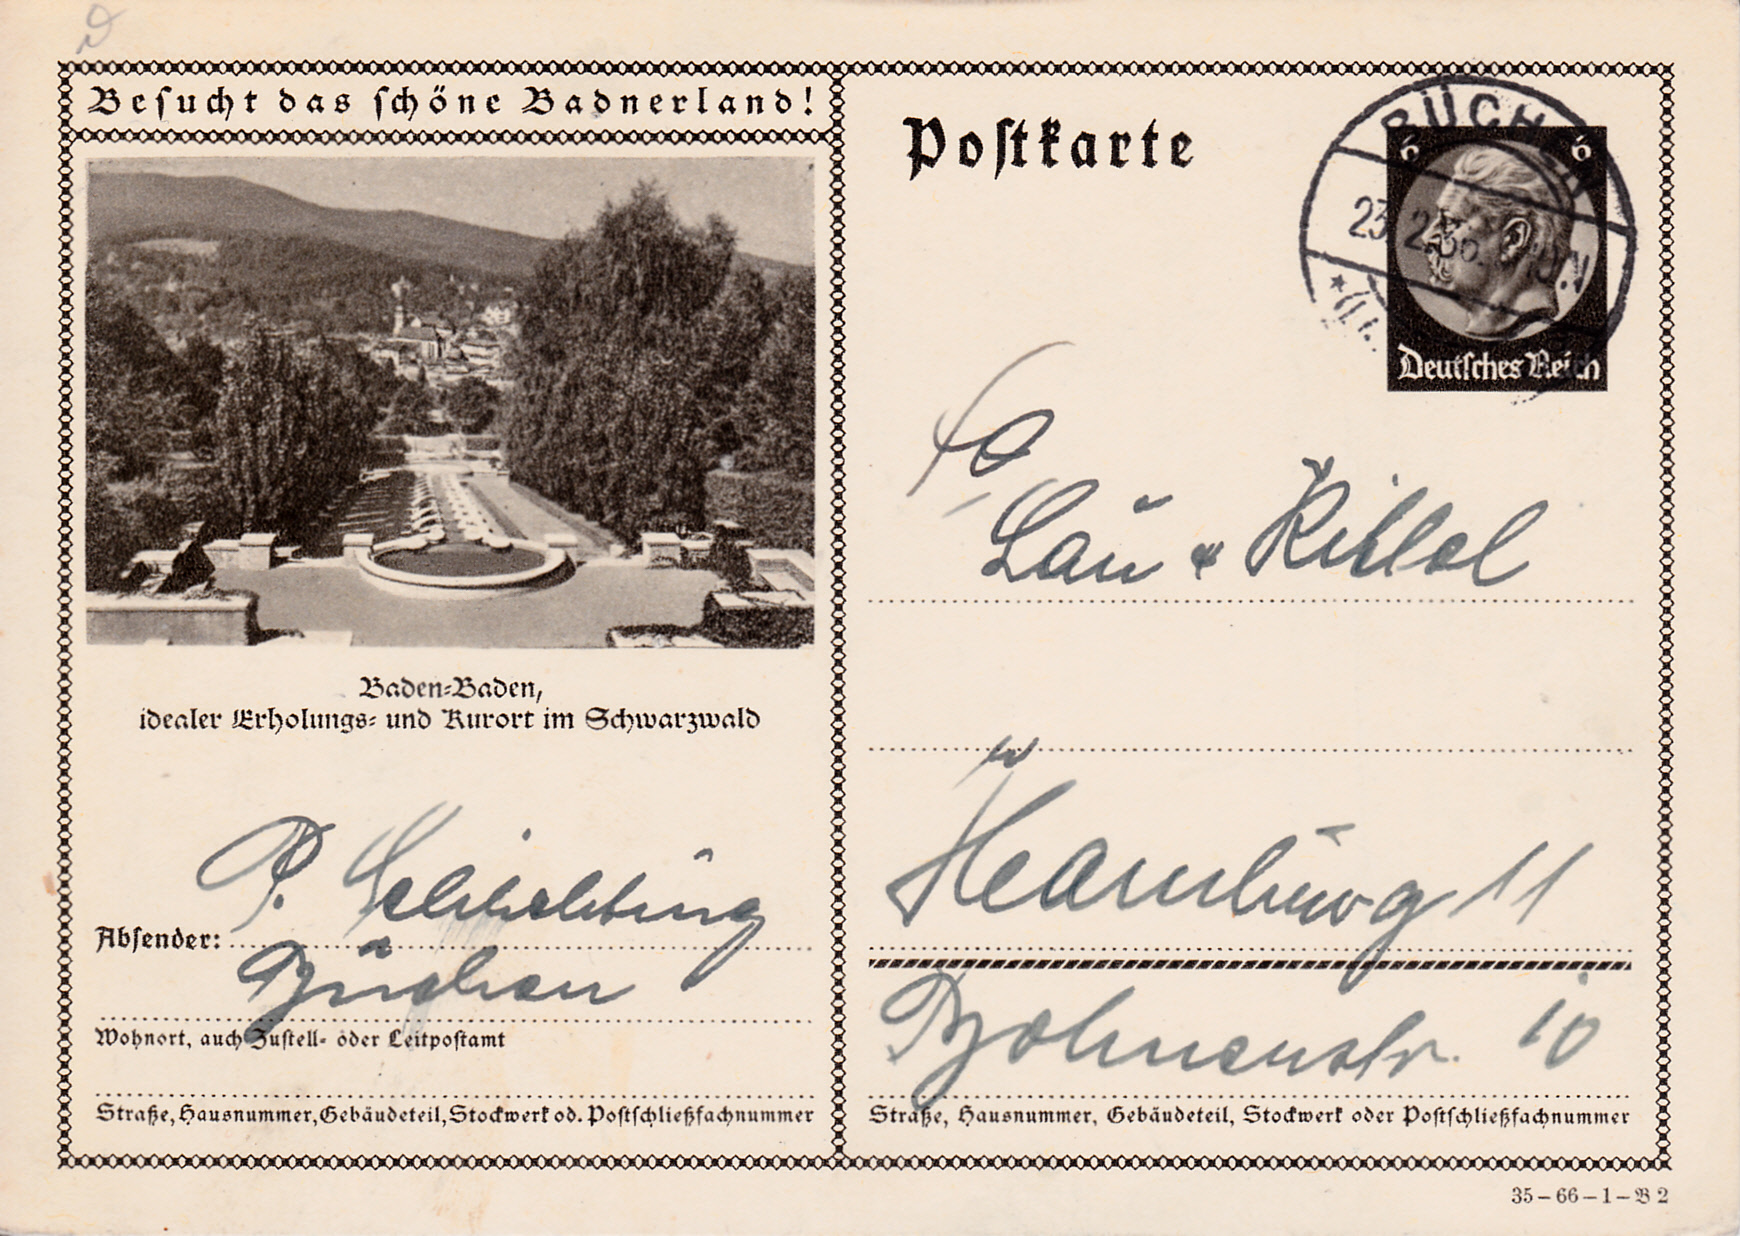 Besucht das schöne Badnerland!
Baden-Baden,
idealer Erholungs- und Kurort im Schwarzwald
P.
Absender:
Büchen
Wohnort, auch Zustell- oder Leitpostamt
Straße, Hausnummer, Gebäudeteil, Stockwerk od. Postschließfachnummer
Postkarte
BÜCHEN
23. 2. 36.
6 6
Deutsches Reich
Lau &
Hamburg 11
Bohnenstr. 10
Straße, Hausnummer, Gebäudeteil, Stockwerk oder Postschließfachnummer
35-66-1-B 2